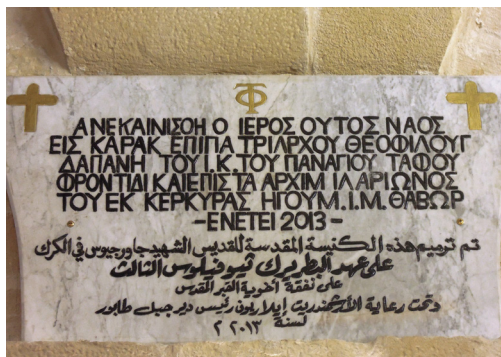 ΤΦ
ΑΝΕΚΑΙΝΙΣΘΗ Ο ΙΕΡΟΣ ΟΥΤΟΣ ΝΑΟΣ
ΕΙΣ ΚΑΡΑΚ ΕΠΙ ΠΑΤΡΙΑΡΧΟΥ ΘΕΟΦΙΛΟΥ Γ
ΔΑΠΑΝΗ ΤΟΥ Ι.Κ.ΤΟΥ ΠΑΝΑΓΙΟΥ ΤΑΦΟΥ
ΦΡΟΝΤΙΔΙ ΚΑΙ ΕΠΙΣΤΑ ΑΡΧΙΜ ΙΛΑΡΙΩΝΟΣ
ΤΟΥ ΕΚ ΚΕΡΚΥΡΑΣ ΗΓΟΥΜ.Ι.Μ.ΘΑΒΩΡ
-ΕΝ ΕΤΕΙ 2013-
تم ترميم هذه الكنيسة المقدسة للقديس الشهيد جاورجيوس في الكرك
على عهد البطريرك ثيوفيلوس الثالث
على نفقة اخوية القبر المقدس
وتحت رعاية الأرشمندريت إيلاريون رئيس دير جبل طابور
لسنة ٢٠١٣